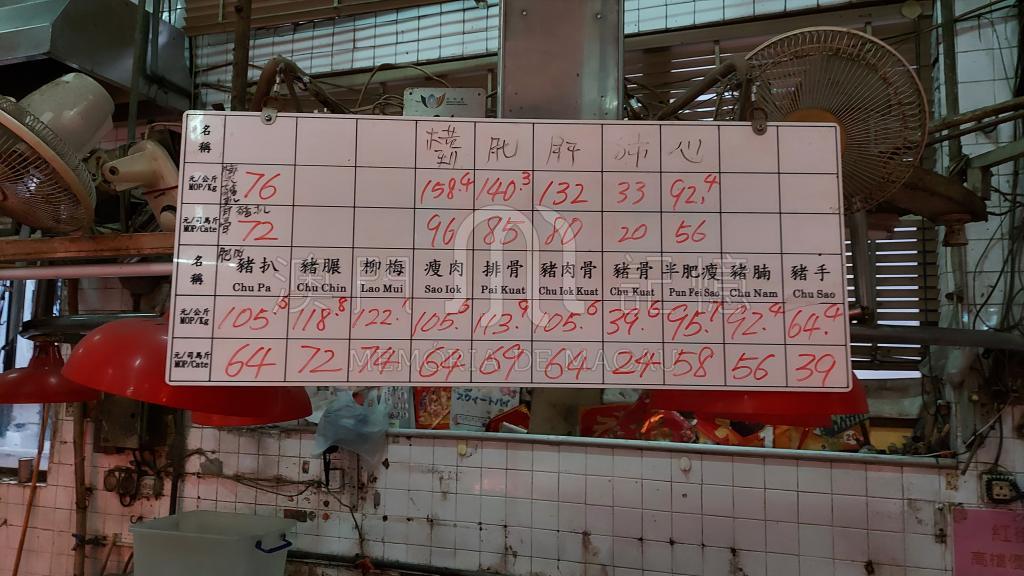 名稱 肶 肝 心
元/公斤 MOP/Kg 76 158.4 140.3 132 33 92.4
元/司馬斤 MOP/Cate 72 96 85 80 20 56
名稱 豬扒 豬𦟌 柳梅 瘦肉 排骨 豬肉骨 豬骨 半肥瘦 豬腩 豬手
Chu Pa Chu Chin Lao Mui Sao Iok Pai Kuat Chu Iok Kuat Chu Kuat Pun Fei Sao Chu Nam Chu Sao
元/公斤 MOP/Kg 105.6 118.8 122.1 105.6 113.9 105.6 39.6 95.7 92.4 64.4
元/司馬斤 MOP/Cate 64 72 74 64 69 64 24 58 56 39
澳門記憶
MEMÓRIA DE MACAU
スウィートパイ
紅
高檔